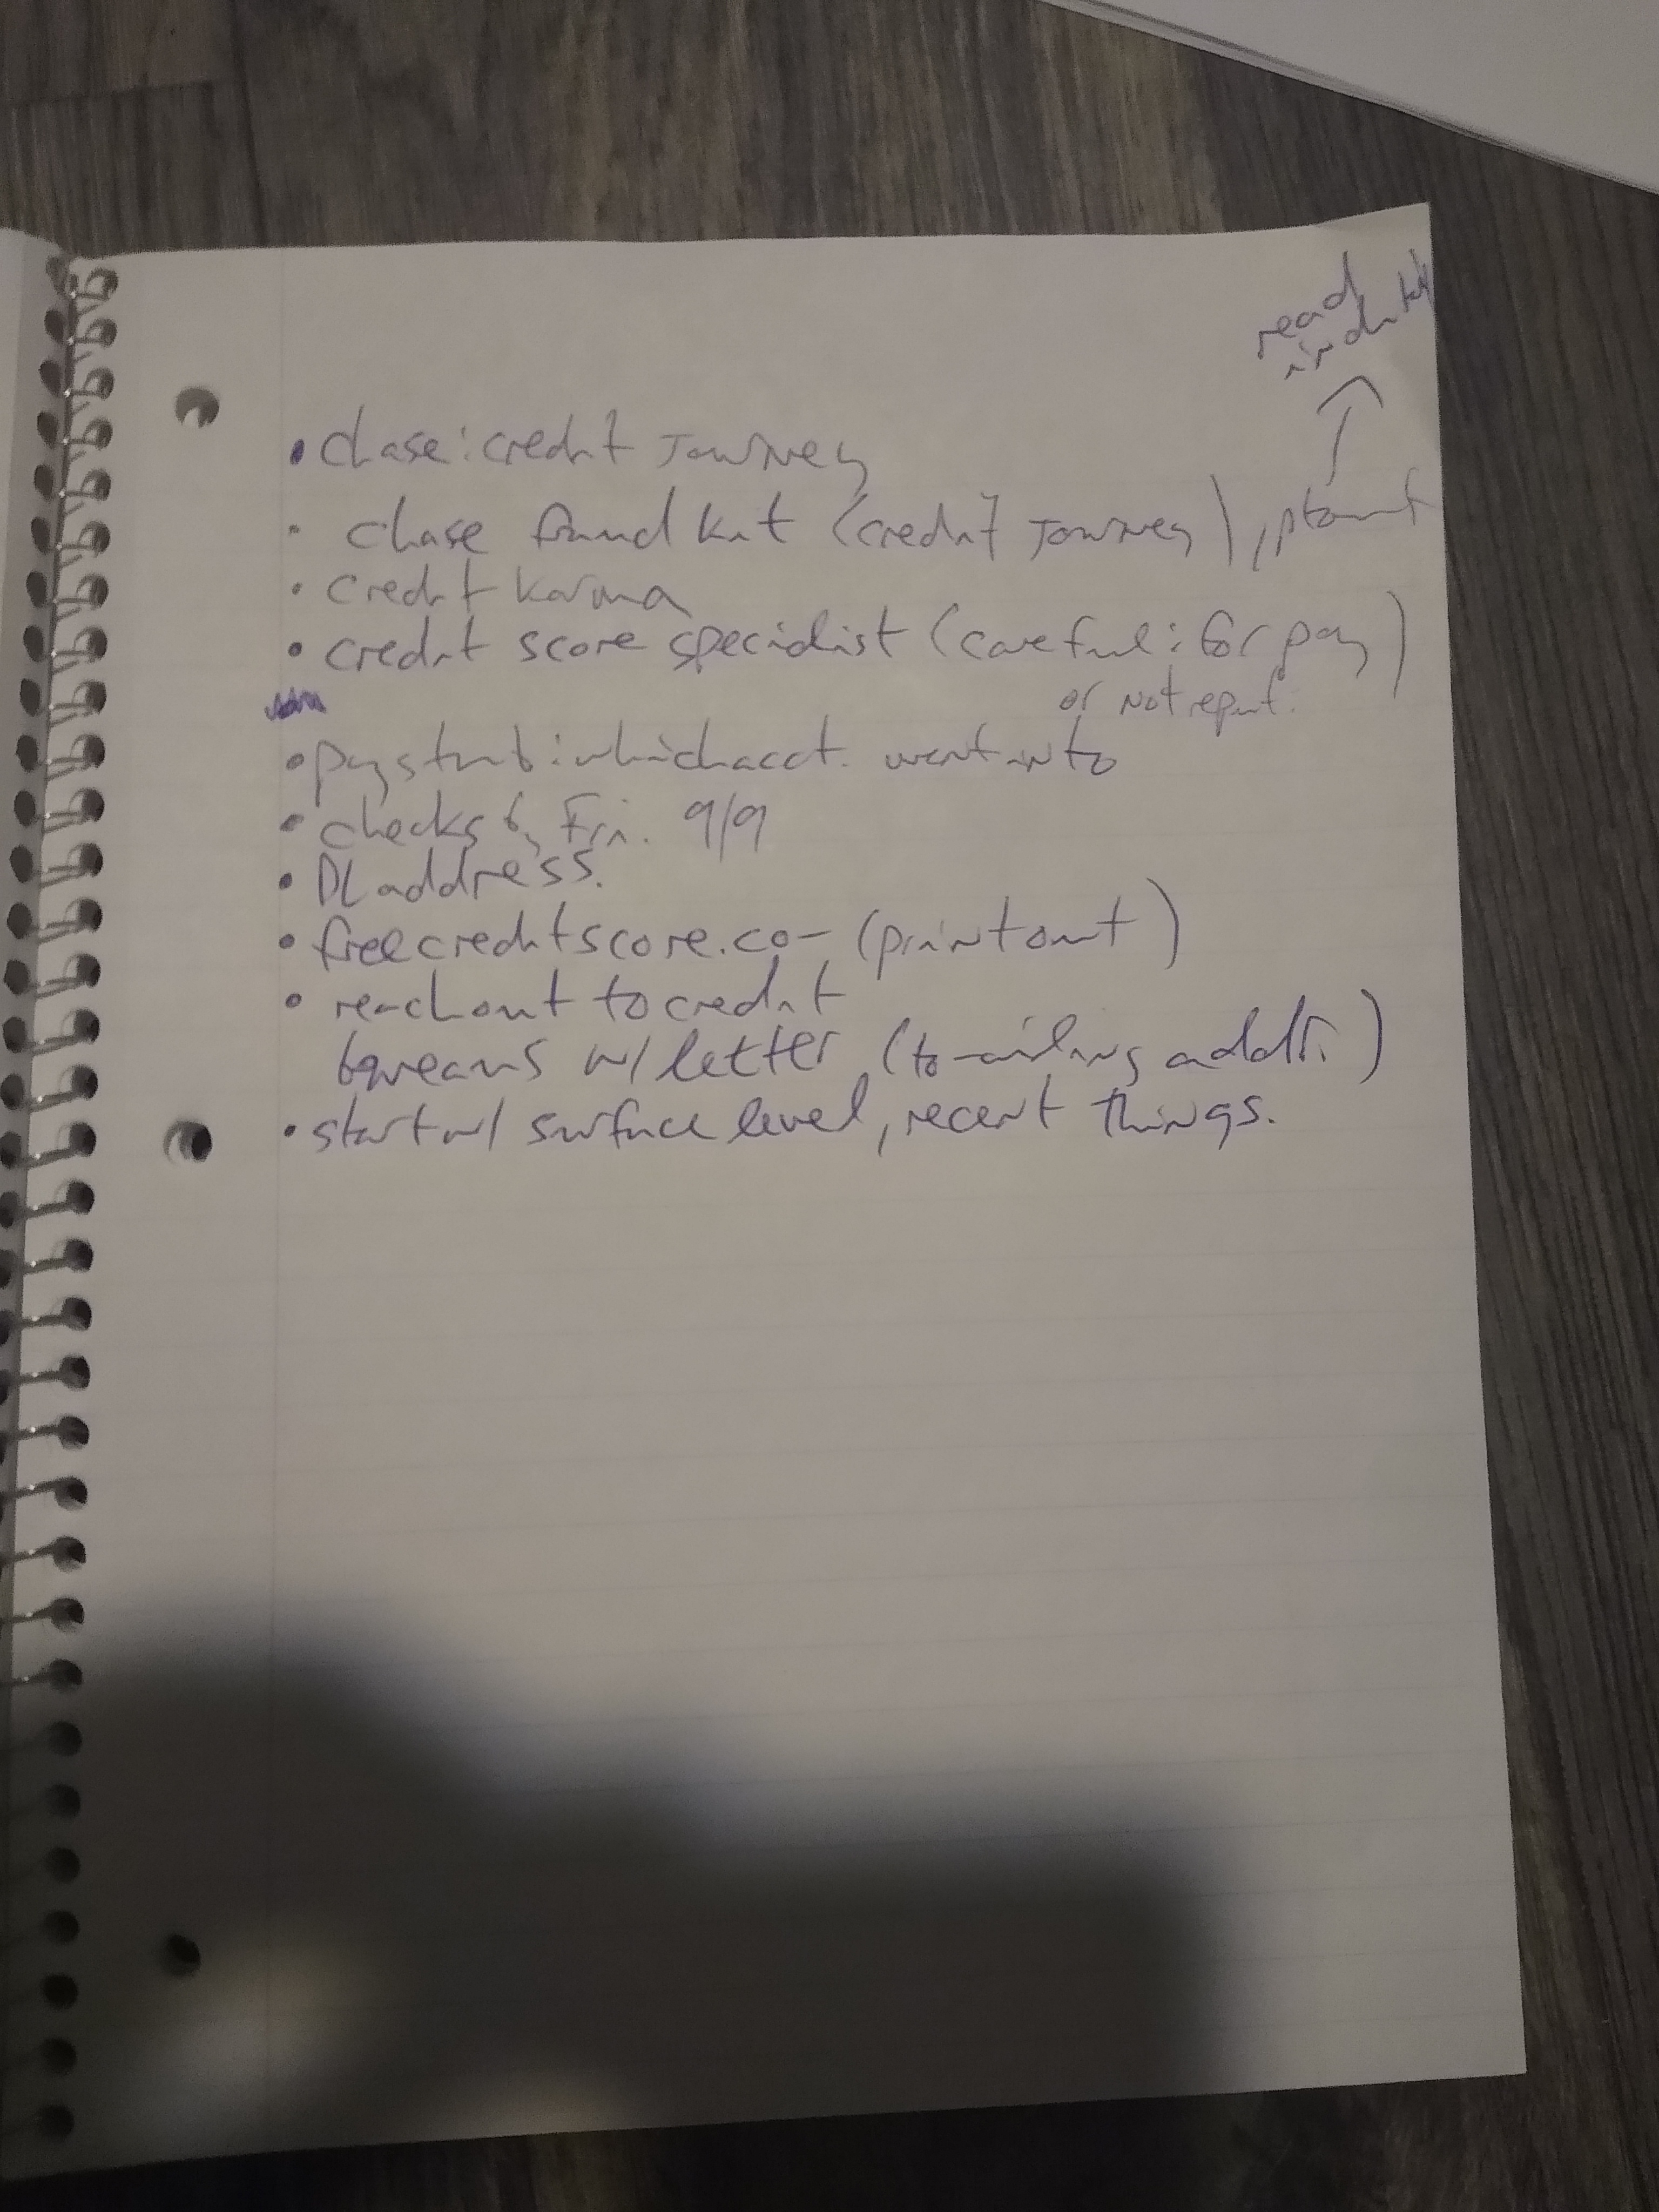 read
• chase: credit Journey
• chase fraud kit (credit Journey), ptout
• credit karma
• credit score specialist (careful: for pay)
or not reput.
• paystub: which acct. went into
• checks by Fri. 9/9
• DL address.
• freecreditscore.com (printout)
• reach out to credit
bureaus w/ letter (to mailing addr.)
• start w/ surface level, recent things.